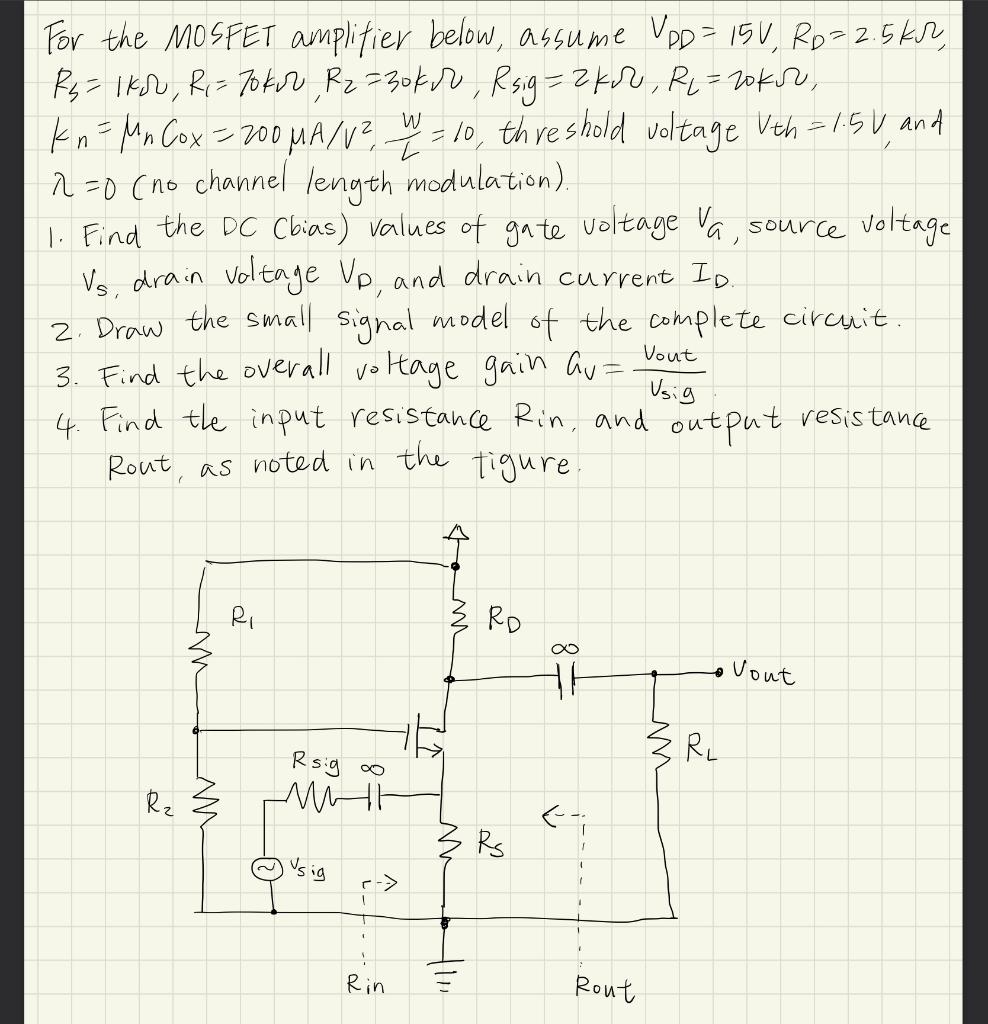 For the MOSFET amplifier below, assume VDD = 15V, RD = 2.5kΩ,
Rs = 1kΩ, R1 = 70kΩ, R2 = 30kΩ, Rsig = 2kΩ, RL = 20kΩ,
kn = μnCox = 200 μA/V², W/L = 10, threshold voltage Vth = 1.5V, and
λ = 0 (no channel length modulation).
1. Find the DC (bias) values of gate voltage VG, source voltage
Vs, drain voltage VD, and drain current ID.
2. Draw the small signal model of the complete circuit.
3. Find the overall voltage gain av = Vout/Vsig.
4. Find tle input resistance Rin, and output resistance
Rout, as noted in the tigure.
R1
RD
∞
Vout
Rsig
∞
RL
R2
Rs
Vsig
Rin
Rout